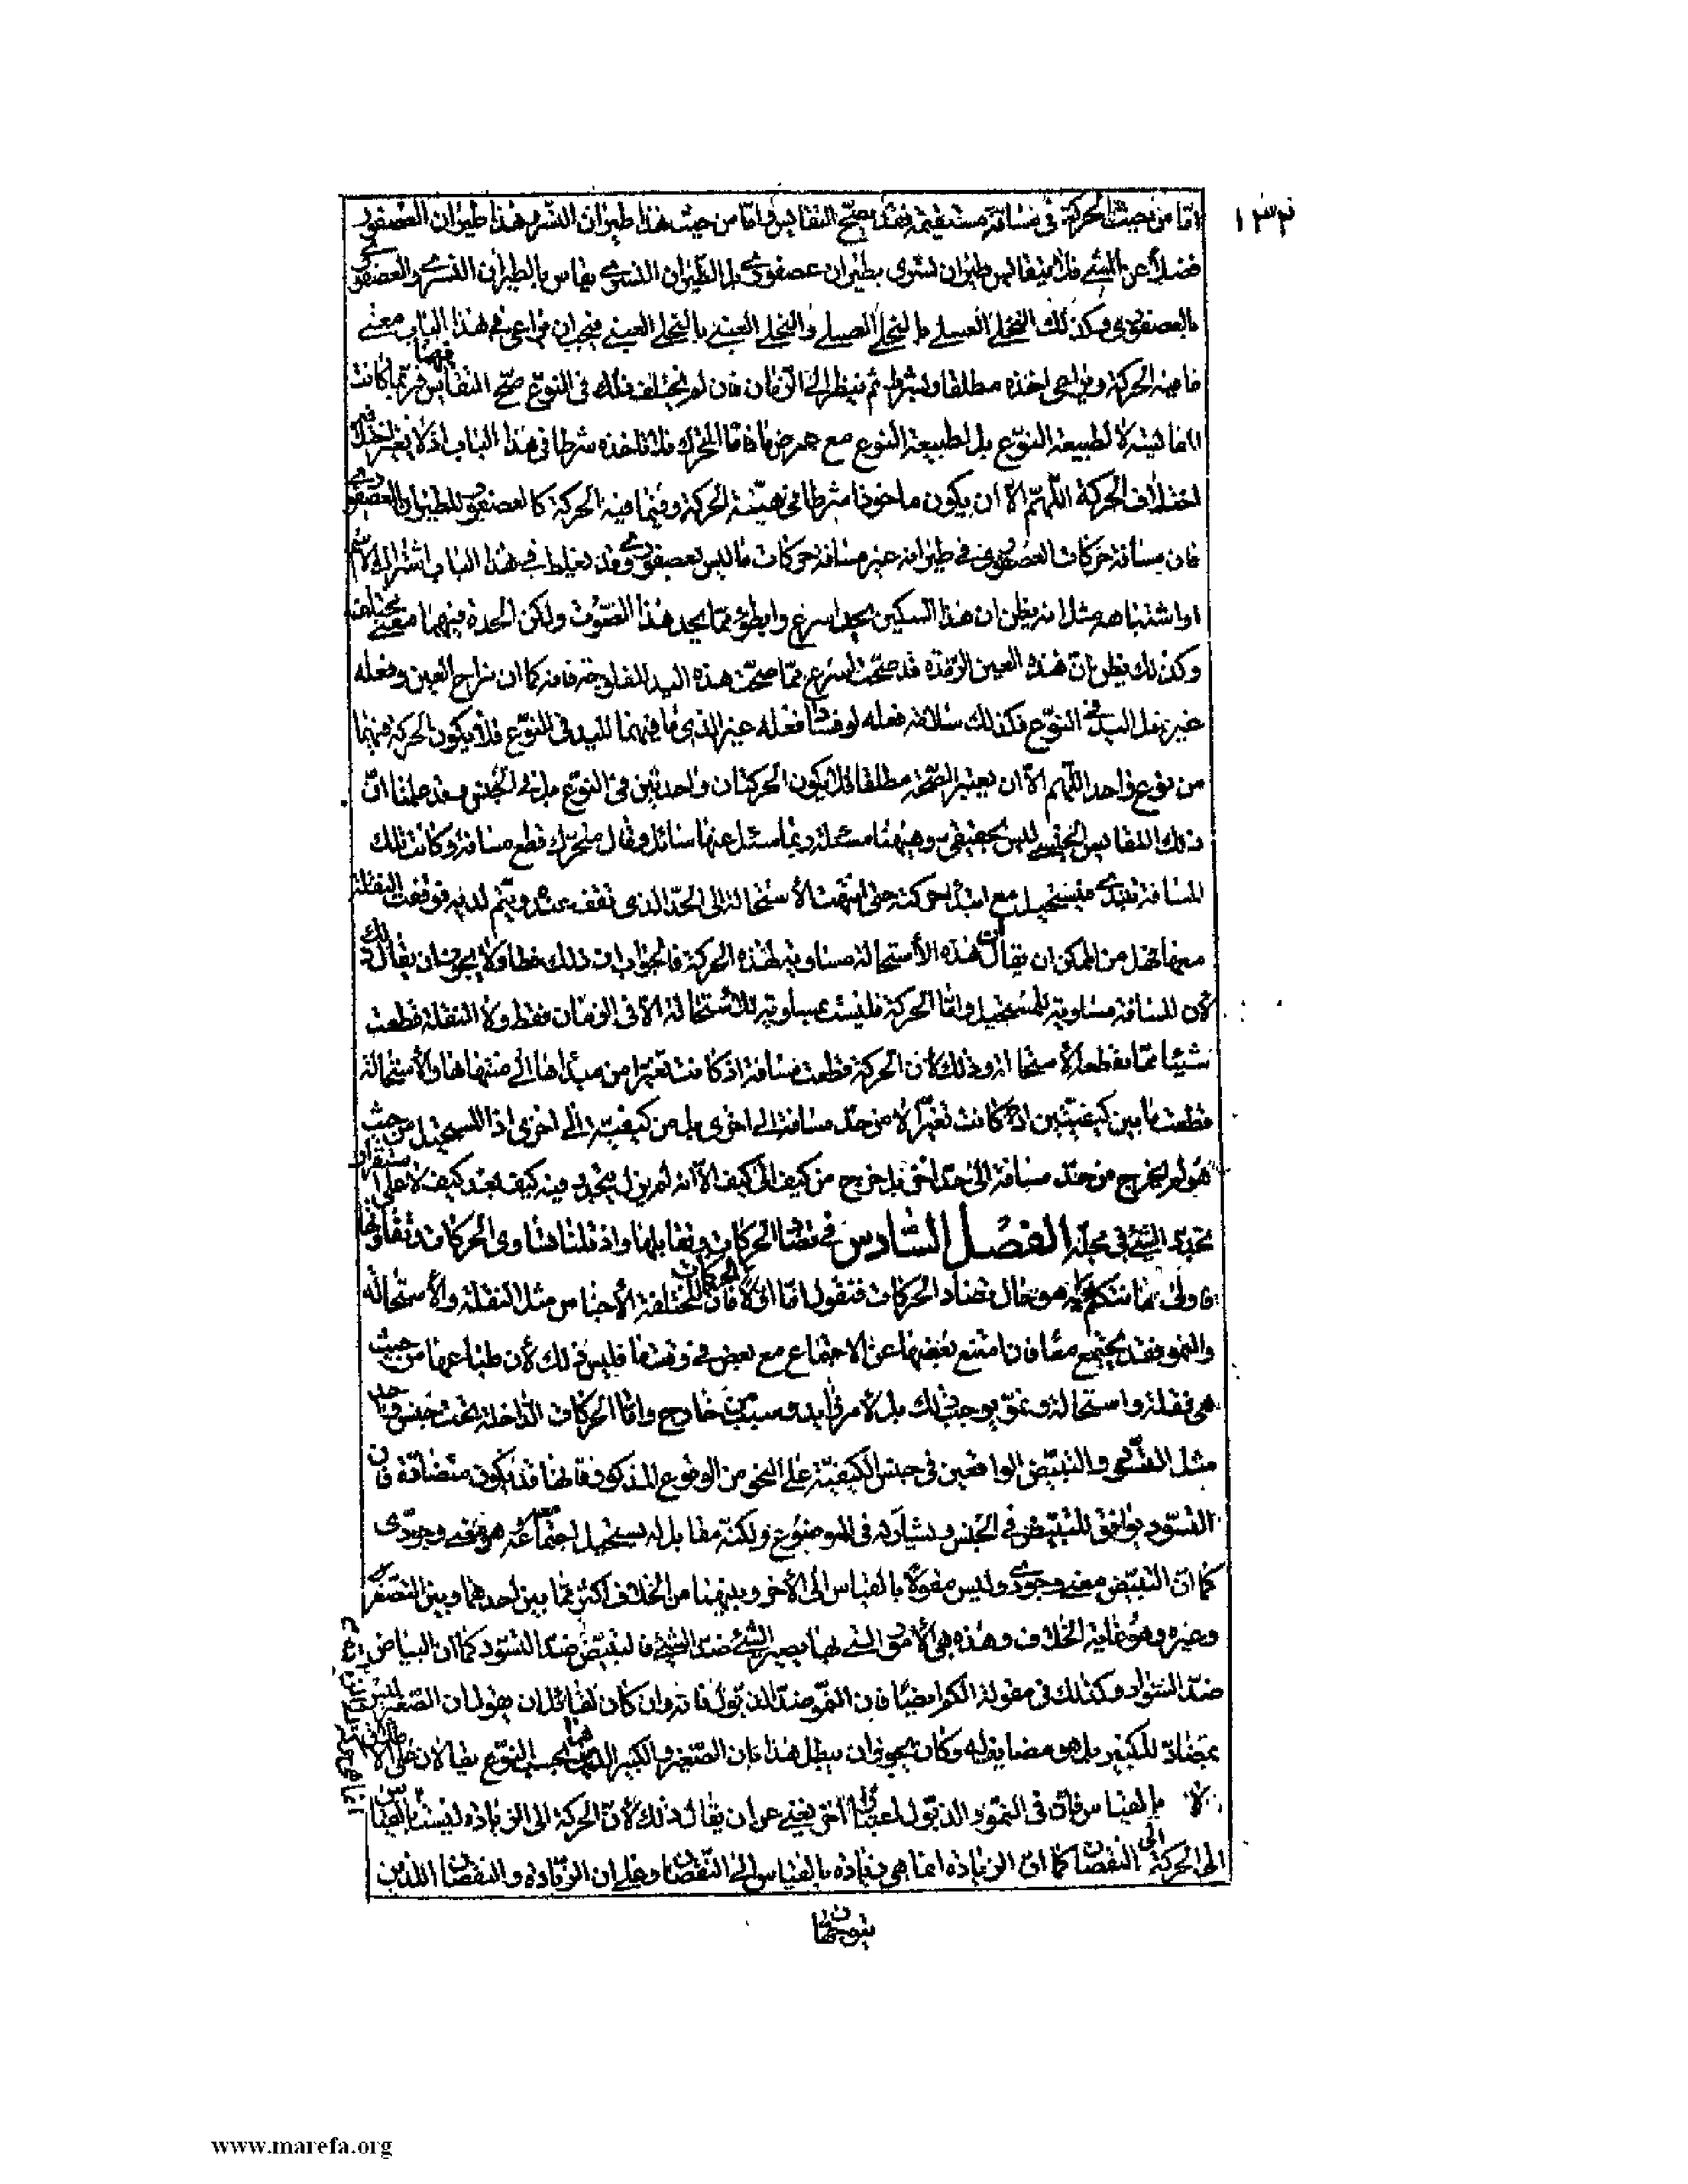 ١٣٣
اما من حيث الحركة فى مسافة مستقيمة فقد يصح التقايس واما من حيث هذا طيران النسر وهذا طيران العصفور
فضلا عن المشى فلا يتقايس طيران نسرى بطيران عصفورى بل الطيران النسرى يقاس بالطيران النسرى والعصفورى
بالعصفورى وكذلك التحلى العسلى بالتحلى العسلى والتحلى العنبى بالتحلى العنبى فيجب ان يراعى فى هذا الباب معنى
ما فيه الحركة ويراعى اخذه مطلقا وبشرط ثم ينظر الى الزمان فان لم يختلف ذلك فى النوع صح التقايس فيهما فربما كانت
لا لطبيعة النوع بل لطبيعة النوع مع عرض ما فاما المحرك فلا تاخذه شرطا فى هذا الباب اذ لا يغير اختلافه
اختلاف الحركة اللهم الا ان يكون ماخوذا شرطا فى هيئة الحركة وفيما فيه الحركة كالعصفور للطيران العصفورى
فان مسافة حركات العصفورى فى طيرانه غير مسافة حركات ما ليس بعصفورى وقد يغلط فى هذا الباب اشتراك الاسم
او اشتباهه مثل انه يظن ان هذا السكين يحد اسرع وابطؤ مما يحد هذا الصوت ولكن الحدة فيهما معنى مختلف
وكذلك يظن ان هذه العين الرمدة قد صحت اسرع مما صحت هذه اليد المفلوجة فانه كما ان مزاج العين وفعله
غير اليد فى النوع فكذلك سلامة فعله وفساد فعله غير الذى فيهما لليد فى النوع فلا يكون الحركة فيهما
من نوع واحد اللهم الا ان يعتبر الصحة مطلقا فلا يكون الحركتان واحدتين فى النوع بل فى الجنس وقد علمنا ان
ذلك التقايس الجنسى ليس بحقيقى وههنا مسئلة ربما سئل عنها سائل وقال متحرك قطع مسافة وكانت تلك
المسافة تبتدى فيستحيل مع ابتداء حركته حتى انتهت الاستحالة الى الحد الذى تقف عنده ويتم لديه فوقفت النقلة
معها فهل من الممكن ان يقال ان هذه الاستحالة مساوية لهذه الحركة فالجواب ان ذلك خطا ولا يجوز ان يقال ذلك
لان المسافة مساوية للمستحيل واما الحركة فليست بمساوية للاستحالة الا فى الزمان فقط ولا النقلة قطعت
شيئا مما يقطعه الاستحالة وذلك لان الحركة قطعت مسافة اذ كانت تغيرا من مبداها الى منتهاها والاستحالة
قطعت ما بين كيفيتين اذ كانت تغيرا لا من حد مسافة الى اخرى بل من كيفية الى اخرى اذ المستحيل من حيث
هو لم يخرج من حد مسافة الى حد اخر بل خرج من كيف الى كيف الا انه لم يزل يتجدد فيه كيف بعد كيف لا على استقرار
تجدد الشىء فى محله الفصل السادس فى تضاد الحركات وتقابلها واذ قلنا فى تساوى الحركات وتفاوتها
فاولى ما نتكلم فيه هو حال تضاد الحركات فنقول اما اولا فان الحركات المختلفة الاجناس مثل النقلة والاستحالة
والنمو فقد يجتمع معا فان امتنع بعضها عن الاجتماع مع بعض فى وقت ما فليس ذلك لان طباعها من حيث
هى نقلة واستحالة ونمو يوجب ذلك بل لامر زايد وسبب من خارج واما الحركات الداخلة تحت جنس واحد
مثل التسود والتبيض الواقعين فى جنس الكيفية على النحو من الوقوع المذكور فانها قد يكون متضادة فان
التسود يوافق للتبيض فى الجنس ويشاركه فى الموضوع ولكنه مقابل له يستحيل اجتماعه معه وهو معنى وجودى
كما ان التبيض معنى وجودى وليس مقولا بالقياس الى الاخر وبينهما من الخلاف اكثر مما بين احدهما وبين التصفر
وغيره وهو غاية الخلاف وهذه هى الامور التى بها يصير الشىء ضد الشىء فالتبيض ضد التسود كما ان البياض
ضد السواد وكذلك فى مقولة الكم ايضا فان النمو ضد الذبول فانه وان كان لقائل ان يقول ان الصغير ليس
بمضاد للكبير بل هو مضايف له وكان يجوز ان يبطل هذا بان الصغير والكبير اللذين هما بحسب النوع يقالان على الاطلاق
لا بالقياس فان فى النمو والذبول اعتبارا اخر يغنى عن ان يقال ذلك لان الحركة الى الزيادة ليست بالقياس
الى الحركة الى النقصان كما ان الزيادة انما هى زيادة بالقياس الى النقصان وعلى ان الزيادة والنقصان اللذين
يتوجهان
www.marefa.org